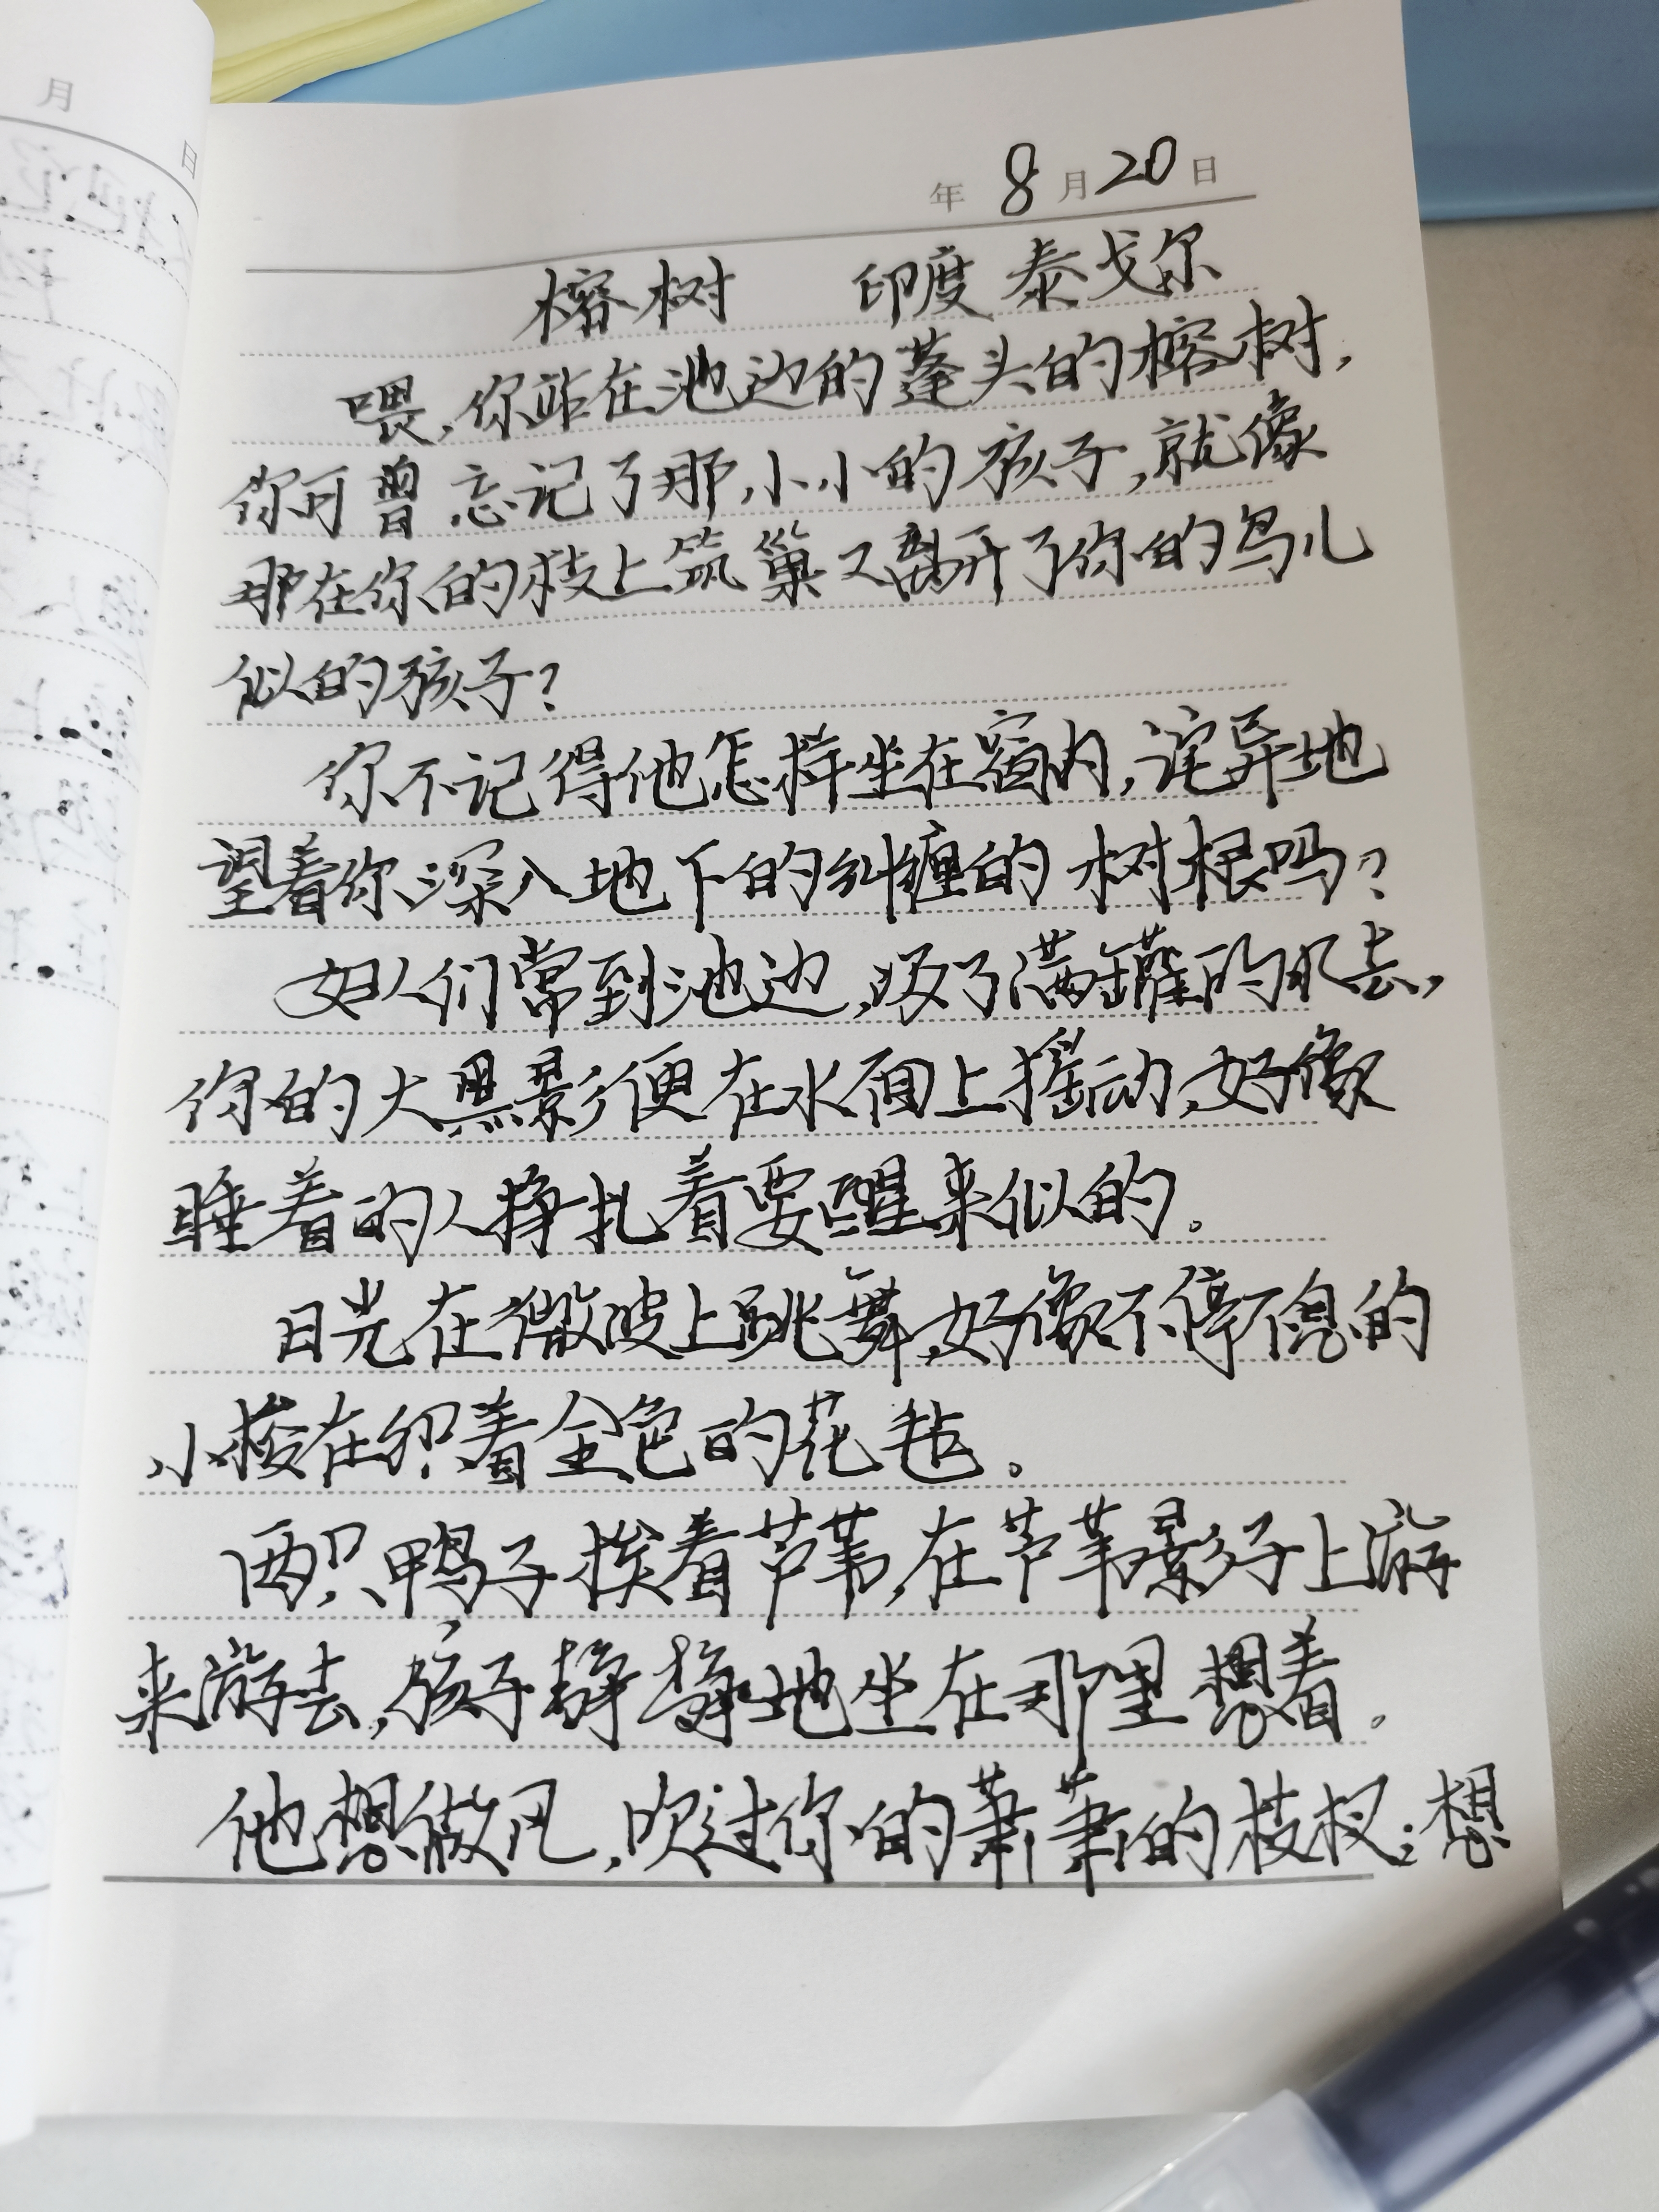 月
日
年 8 月 20 日
榕树 印度 泰戈尔
喂,你站在池边的蓬头的榕树,
你可曾忘记了那小小的孩子,就像
那在你的枝上筑巢又离开了你的鸟儿
似的孩子?
你不记得他怎样坐在窗内,诧异地
望着你深入地下的纠缠的树根吗?
妇人们常到池边,汲了满罐的水去,
你的大黑影便在水面上摇动,好像
睡着的人挣扎着要醒来似的。
日光在微波上跳舞,好像不停不息的
小梭在织着金色的花毡。
两只鸭子挨着芦苇,在芦苇影子上游
来游去,孩子静静地坐在那里想着。
他想做风,吹过你的萧萧的枝杈;想